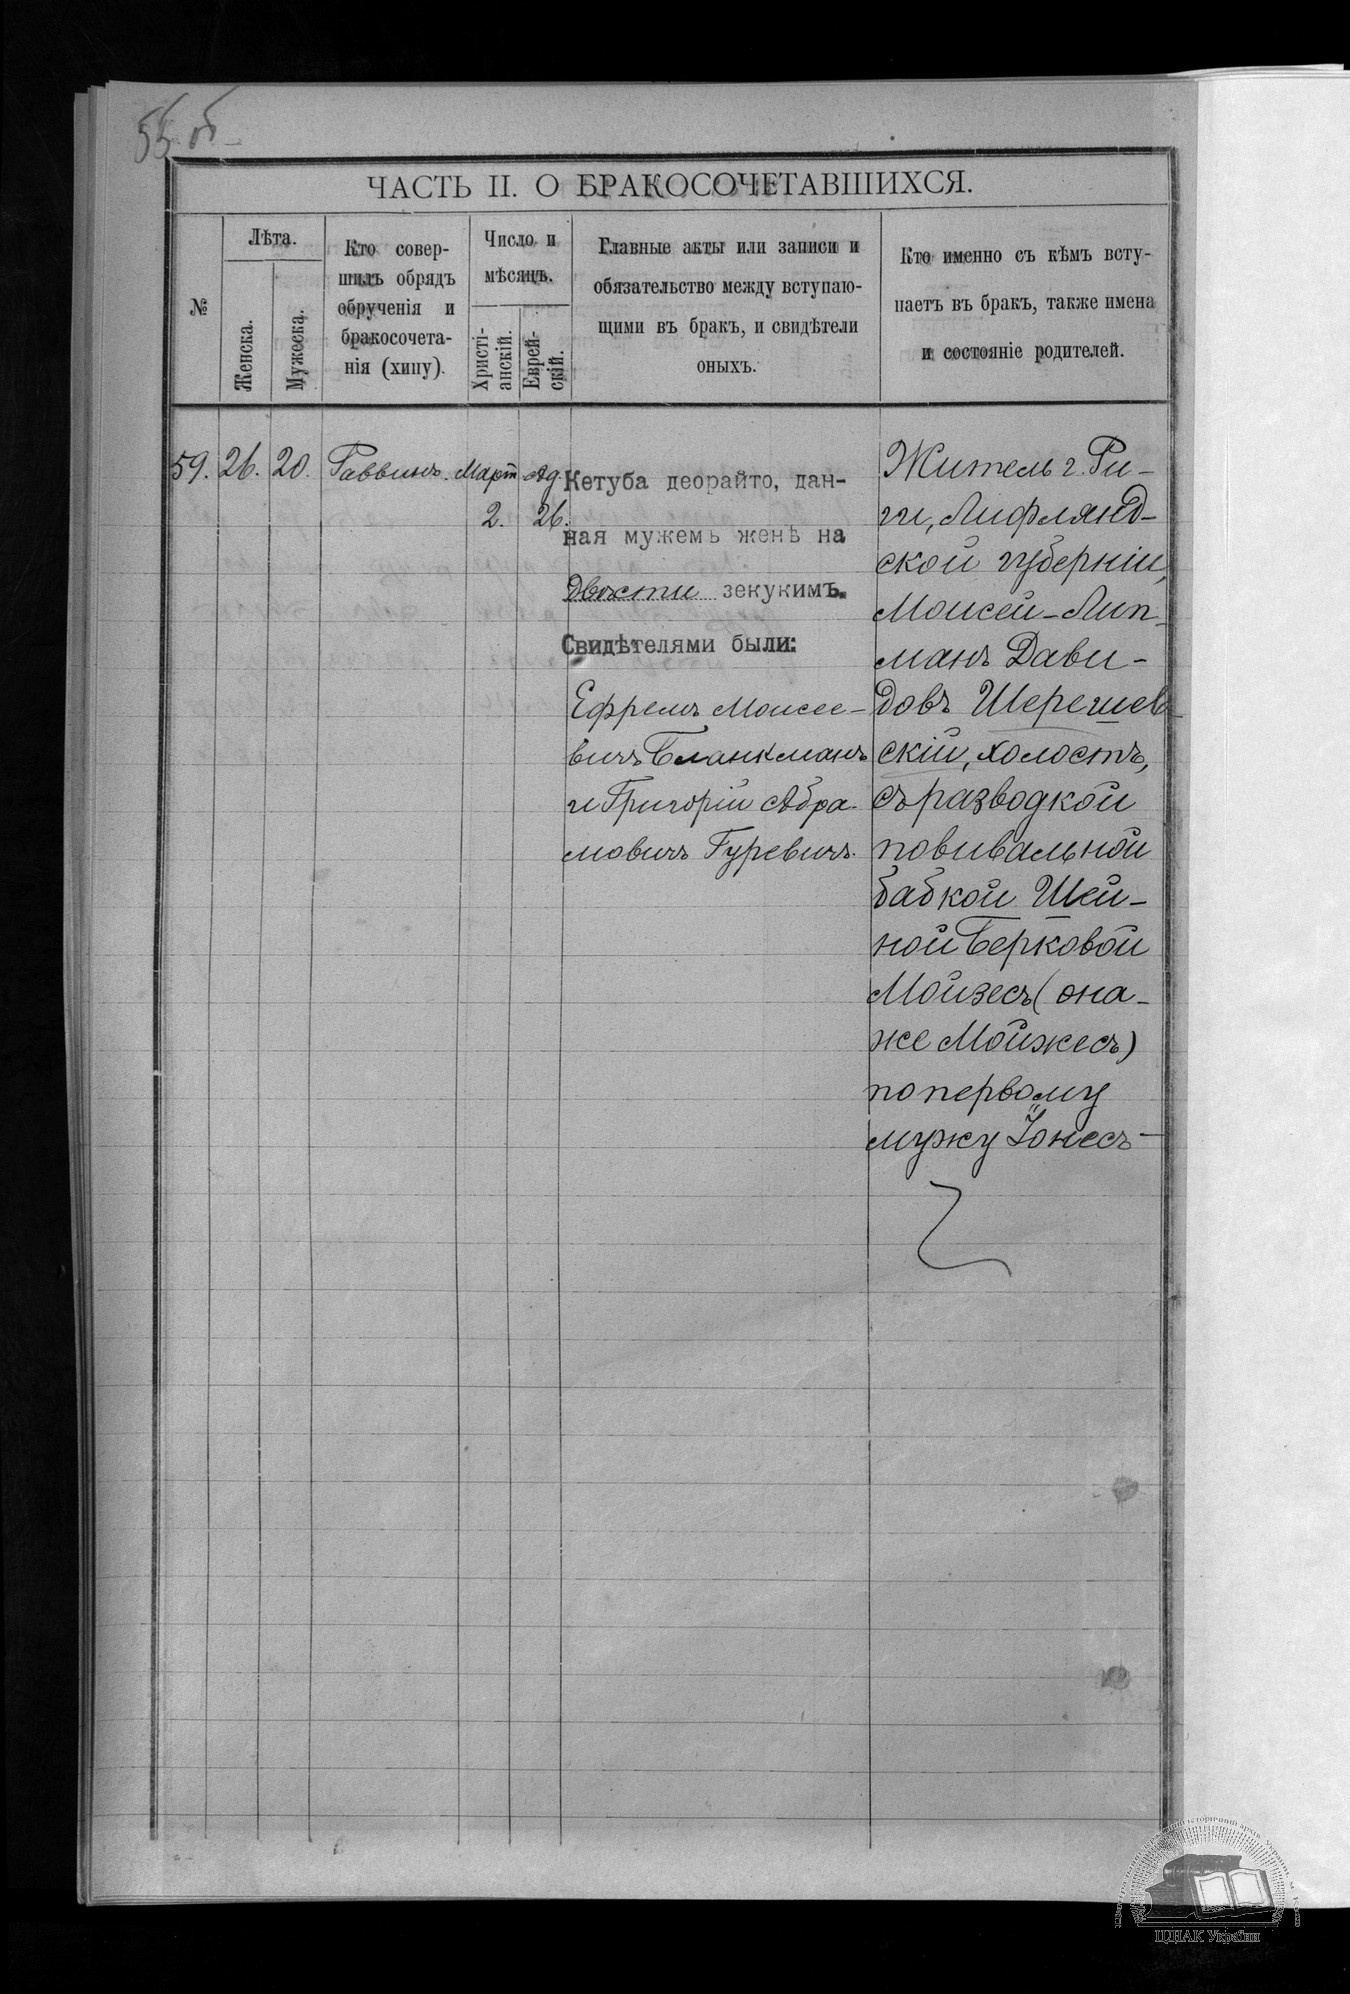 55 об
ЧАСТЬ II. О БРАКОСОЧЕТАВШИХСЯ.
№
Лѣта.
Женска.
Мужеска.
Кто совер-
шилъ обрядъ
обрученія и
бракосочета-
нія (хипу).
Число и
мѣсяцъ.
Христі-
анскій.
Еврей-
скій.
Главные акты или записи и
обязательство между вступаю-
щими въ бракъ, и свидѣтели
оныхъ.
Кто именно съ кѣмъ всту-
паетъ въ бракъ, также имена
и состояніе родителей.
59. 26. 20. Раввинъ. Март Ад.
2. 26.
Кетуба деорайто, дан-
ная мужемъ женѣ на
Двѣсти зекукимъ.
Свидѣтелями были:
Ефремъ Моисее-
вичъ Бланкманъ
и Григорій Абра-
мовичъ Гуревичъ.
Житель г. Ри-
ги, Лифлянд-
ской губерніи,
Моисей-Лип-
манъ Дави-
довъ Шерешев-
скій, холостъ,
съ разводкой
повивальной
бабкой Шей-
ной Берковой
Мойзесъ (она-
же Мойжесъ)
по первому
мужу Іонесъ
ЦДІАК України